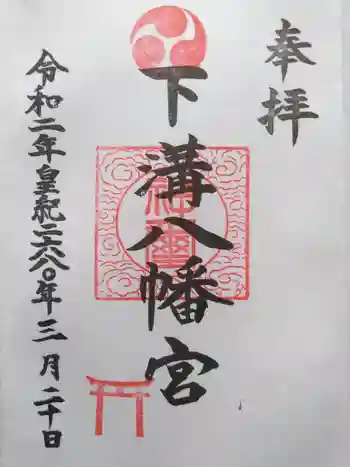 奉拝
下溝八幡宮
令和二年皇紀二六八〇年三月二十日